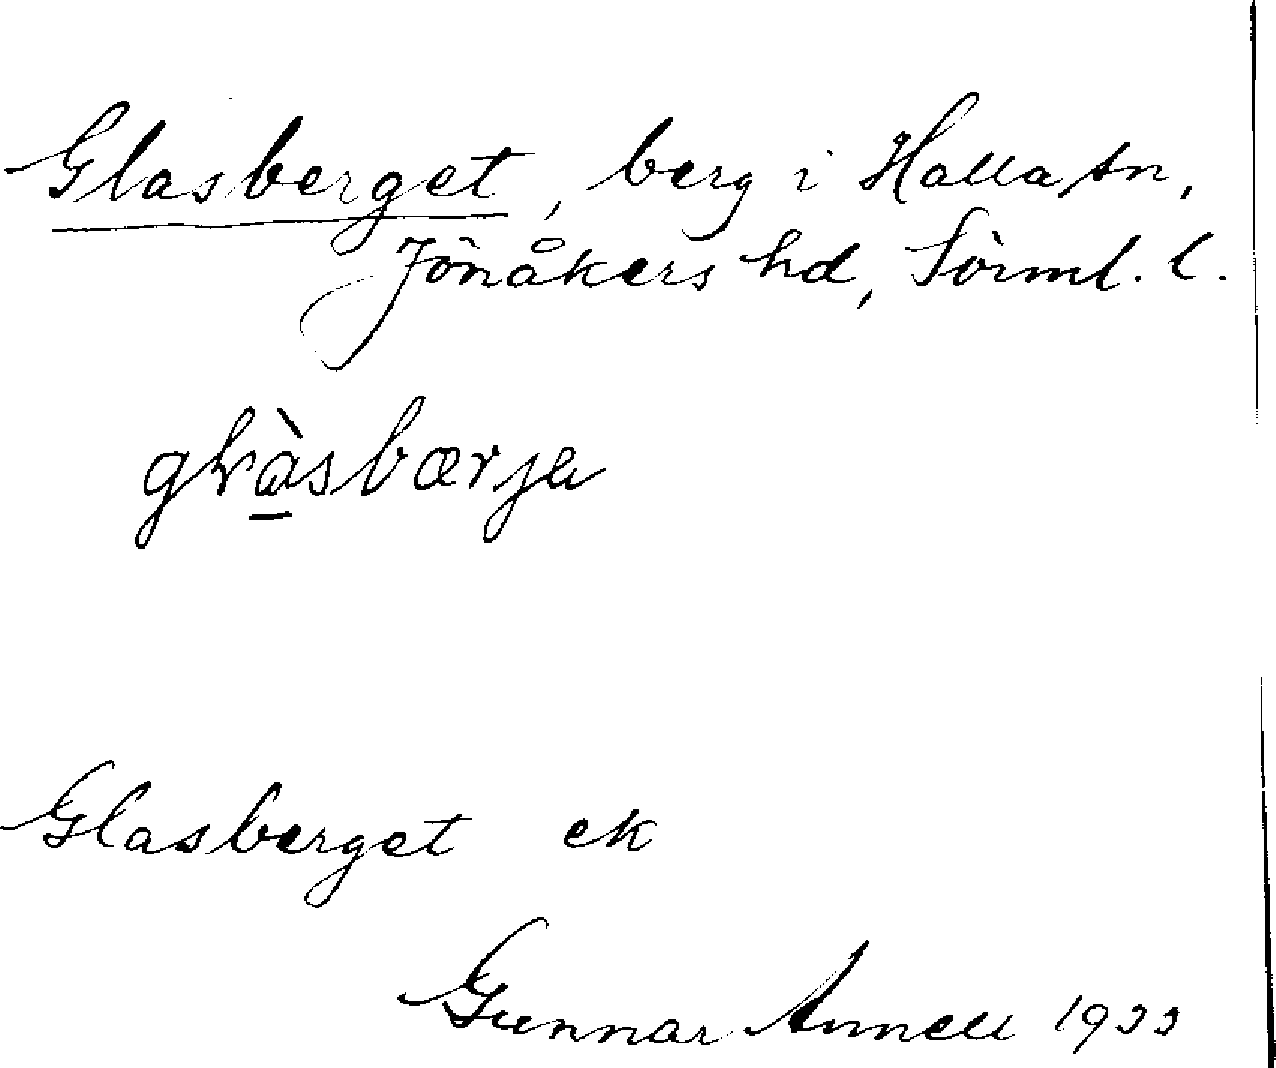 Glasberget, berg i Halla sn,
Jönåkers hd, Sörml. l.
glàsbærja
Glasberget ek
Gunnar Annell 1933